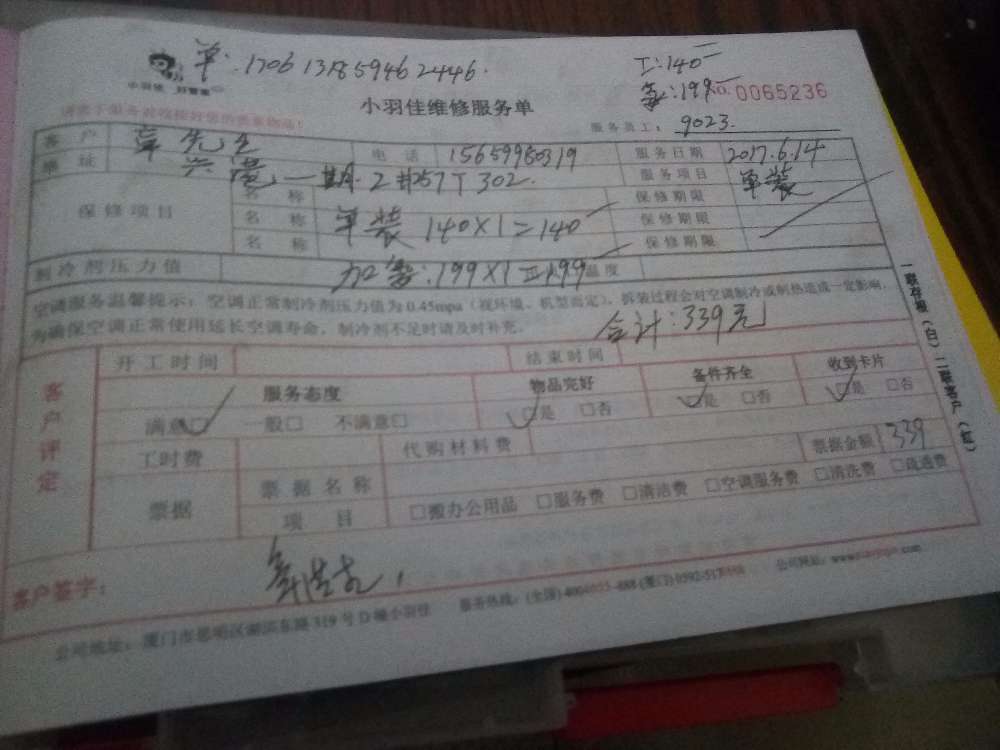 单:1706131859462446.
工:140
小羽佳 好管家
:199 NO.0065236
小羽佳维修服务单
服务员工: 9023.
客户 先生 电话 15659980319 服务日期 2017.6.14
地址 一期 2# 302. 服务项目 单装
保修项目 名称 保修期限
名称 单装 140X1=140 保修期限
名称 保修期限
制冷剂压力值 加氟:199X1=199 温度
空调服务温馨提示:空调正常制冷剂压力值为0.45mpa(视环境、机型而定),拆装过程会对空调制冷或制热造成一定影响,
为确保空调正常使用延长空调寿命,制冷剂不足时请及时补充。
合计:339元
一联存根(白)二联客户(红)
客户评定
开工时间 结束时间
服务态度 物品完好 备件齐全 收到卡片
满意□ 一般□ 不满意□ □是 □否 □是 □否 □是 □否
工时费 代购材料费 票据金额 339
票据 票据名称
项目 □搬办公用品 □服务费 □清洁费 □空调服务费 □清洗费 □疏通费
客户签字:
公司地址:厦门市思明区湖滨东路319号D幢小羽佳 服务热线:(全国) (厦门) 公司网站: